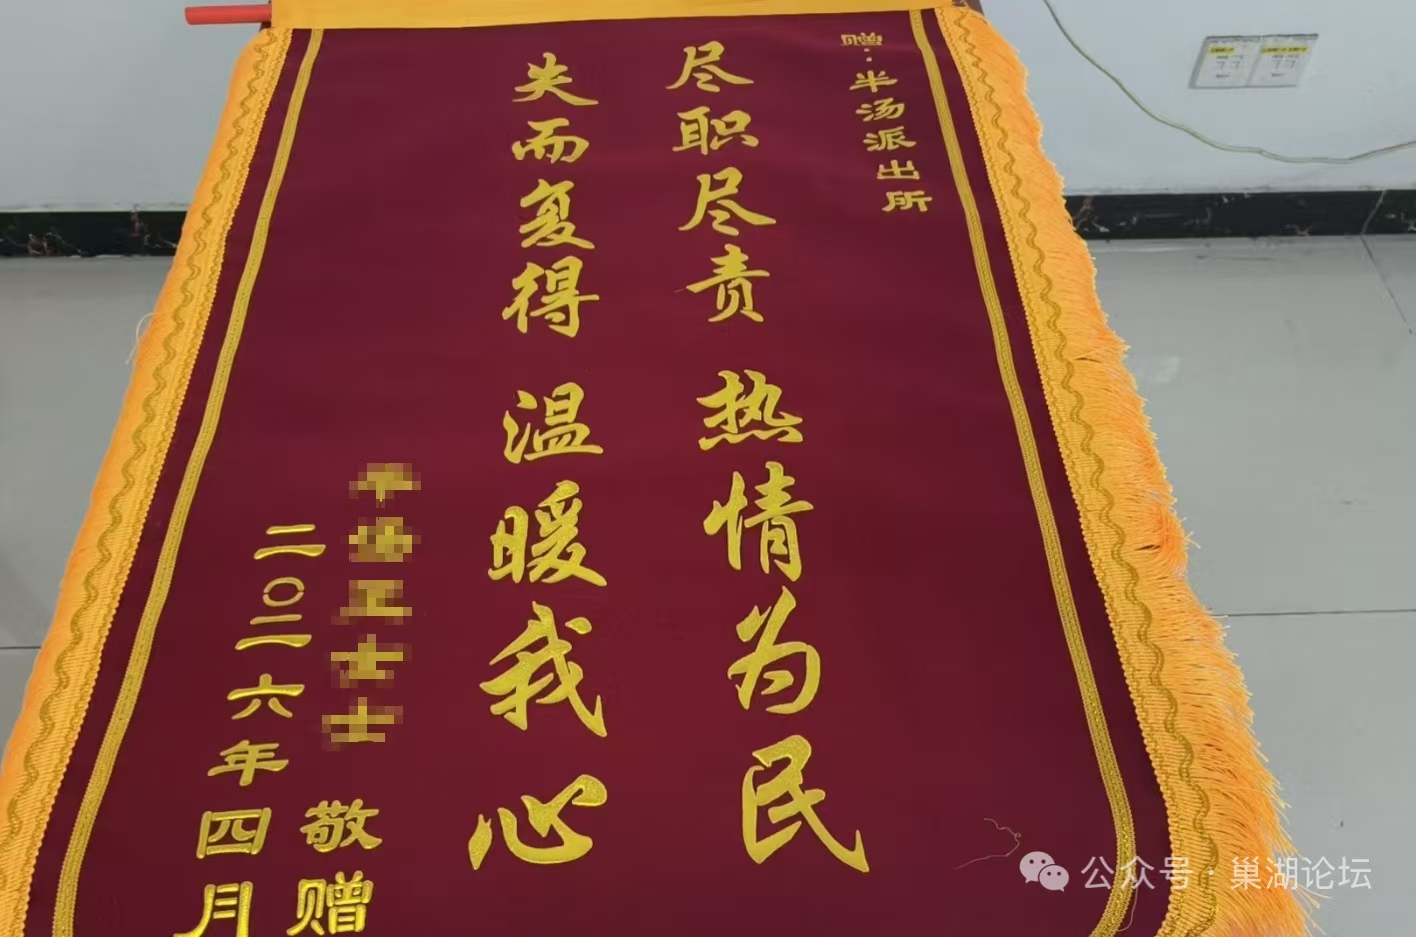 赠：半汤派出所
尽职尽责 热情为民
失而复得 温暖我心
敬赠
二〇二六年四月
公众号·巢湖论坛